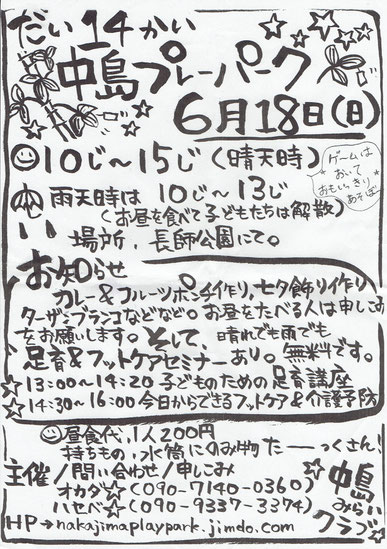 だい14かい
中島プレーパーク
6月18日(日)
10じ〜15じ(晴天時)
ゲームは
おいて
おもいっきり
あそぼ
雨天時は 10じ〜13じ
(お昼を食べて子どもたちは解散)
場所,長師公園にて。
お知らせ
カレー&フルーツポンチ作り,七夕飾り作り,
ターザンブランコなどなど。お昼をたべる人は申しこみ
をお願いします。そして,晴れでも雨でも
足育&フットケアセミナーあり。無料です。
☆13:00〜14:20 子どものための足育講座
☆14:30〜16:00 今日からできるフットケア&介護予防
昼食代,1人200円
持ちもの,水筒にのみ物たーーっくさん,
主催/問い合わせ/申しこみ
オカダ☆(090-7140-0360)
ハセベ☆(090-9337-3374)
中島
みらい
クラブ
HP→nakajimaplaypark.jimdo.com